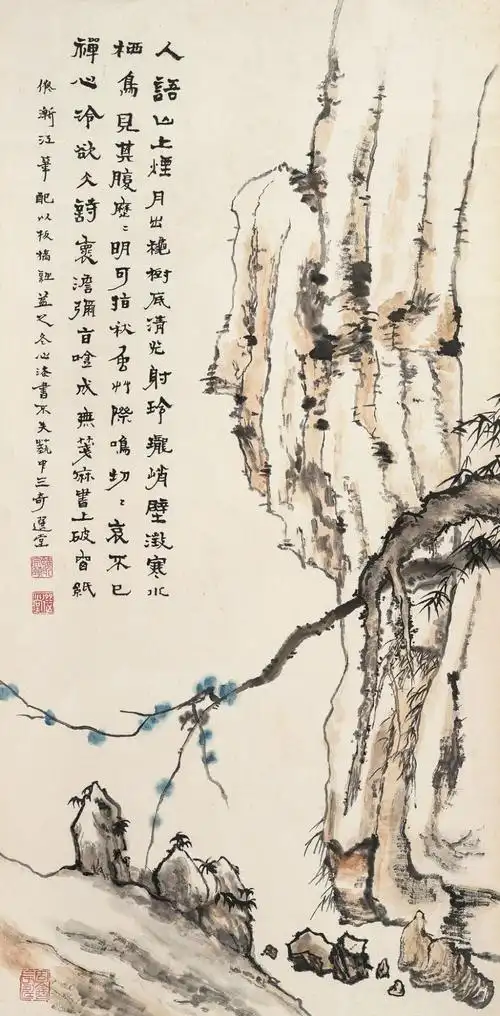 人語山上煙月出穐樹底清光射玲瓏峭壁澂寒水
栖鳥見其腹歷〻明可指秋虫艸際鳴切〻哀不已
禪心冷欲仌詩褱澹彌旨唫成無箋麻書上破窗紙
漸江筆配以板橋益之冬心漆書不失藝中三奇選堂